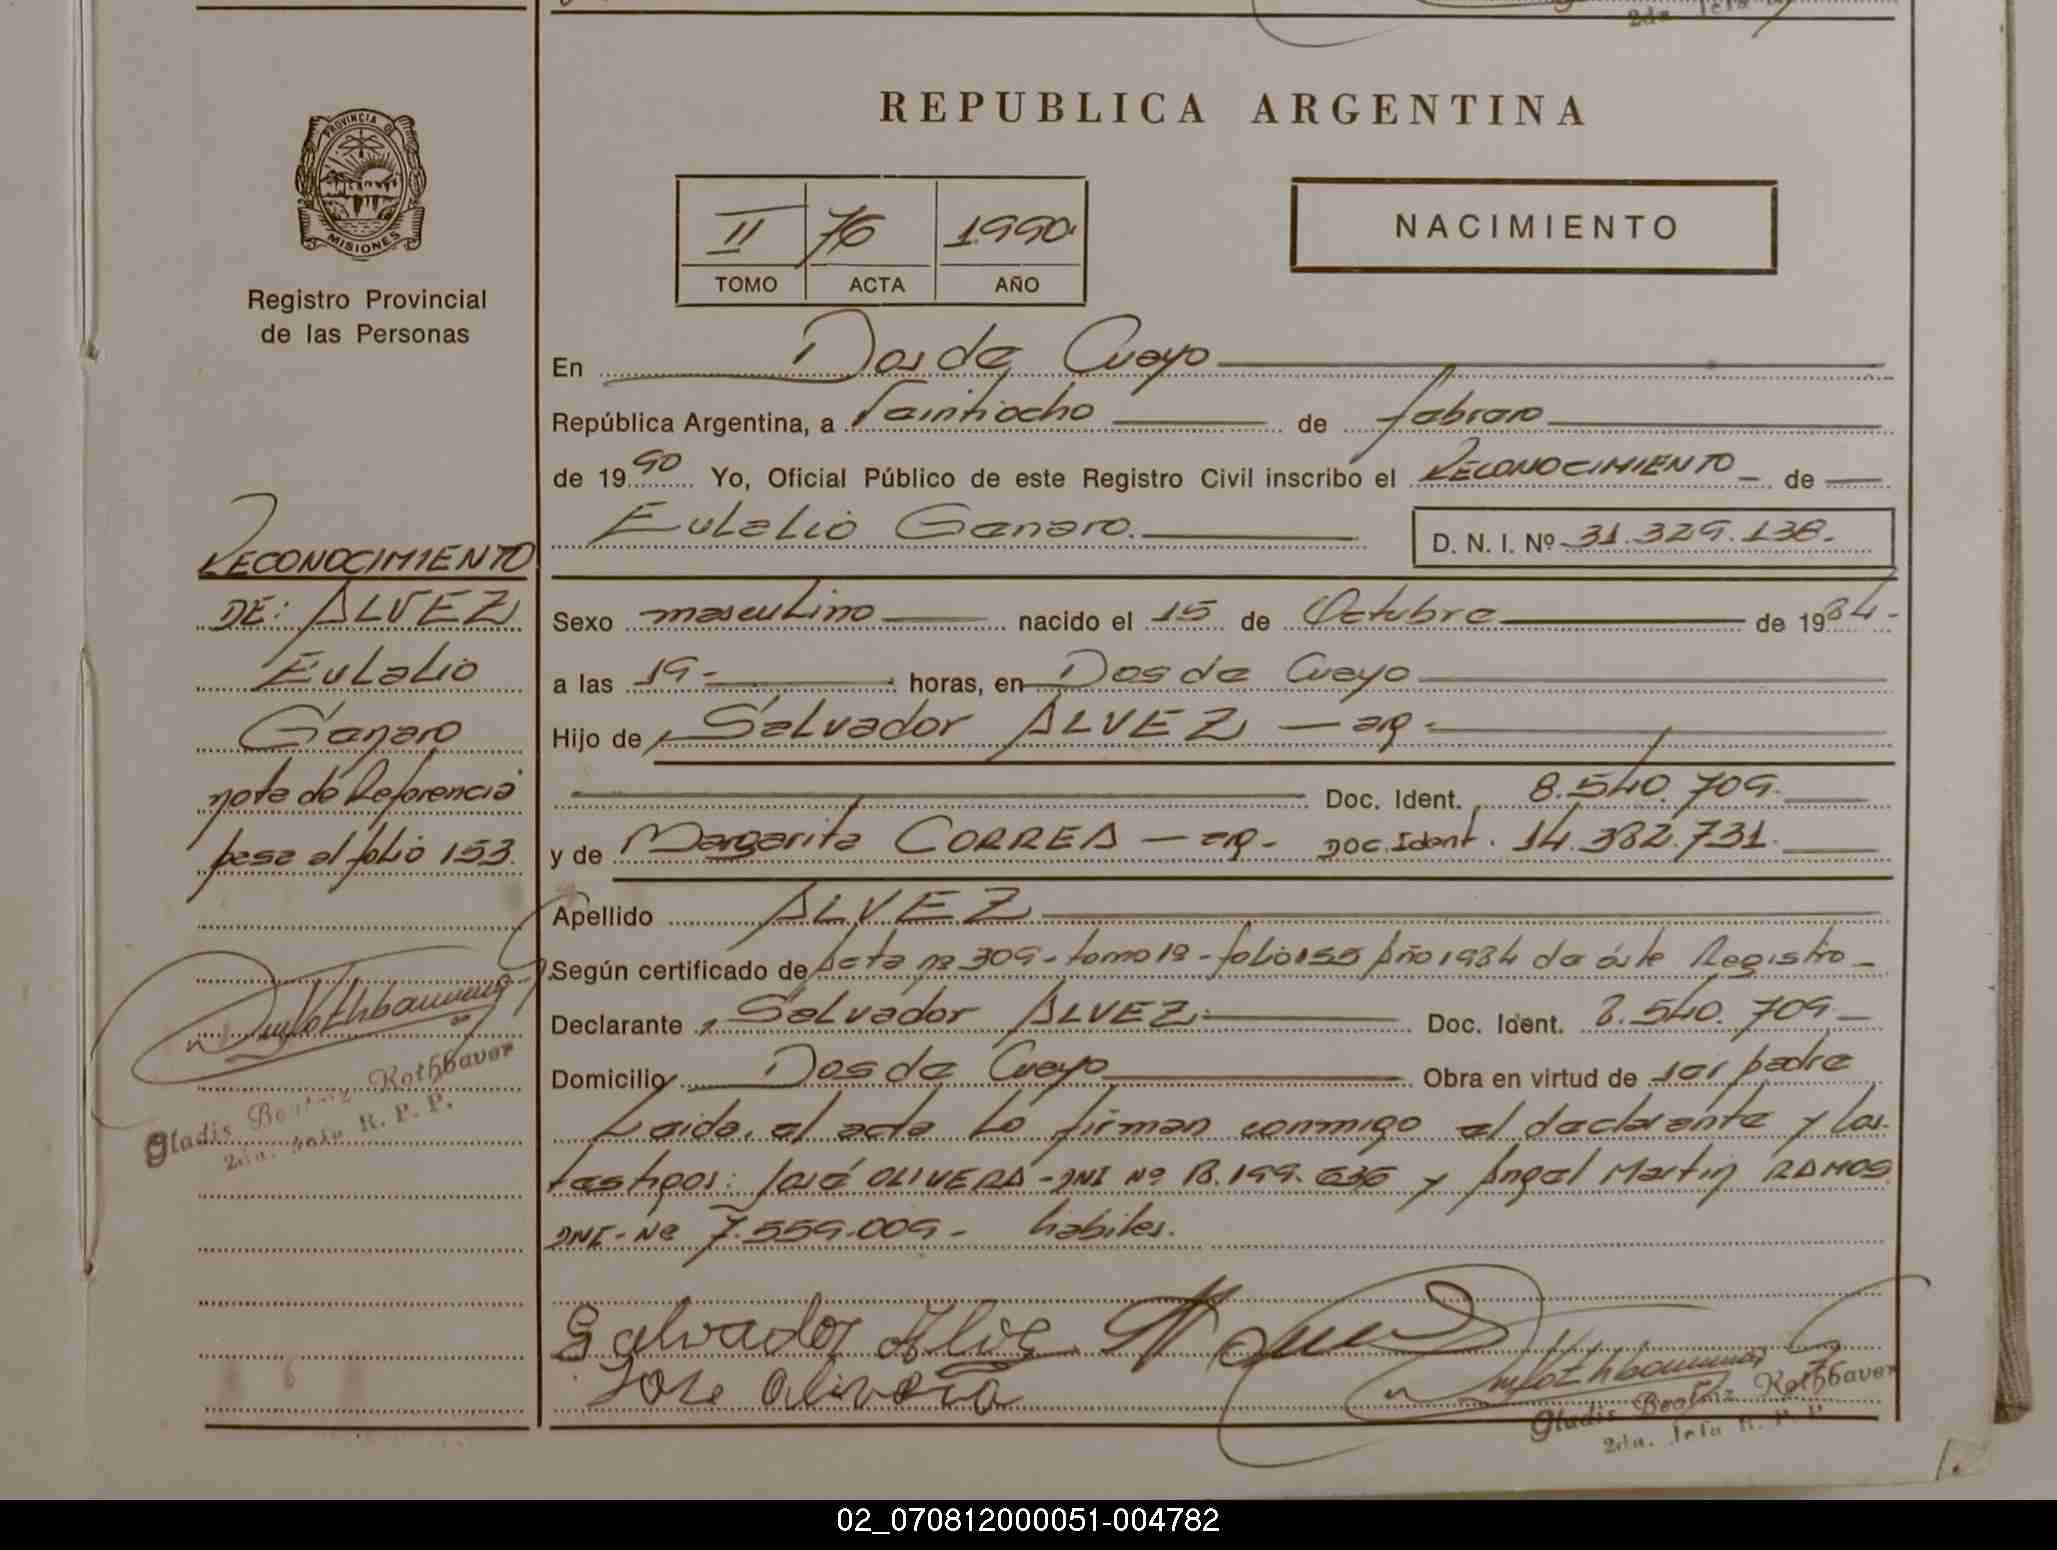 2da Jefa
REPUBLICA ARGENTINA
PROVINCIA DE
MISIONES
Registro Provincial
de las Personas
II 76 1990
TOMO ACTA AÑO
NACIMIENTO
En Dos de Mayo
República Argentina, a Veintiocho de febrero
de 1990 Yo, Oficial Público de este Registro Civil inscribo el RECONOCIMIENTO de
Eulalio Genaro. D. N. I. Nº 31.329.138.
Sexo masculino nacido el 15 de Octubre de 1984
a las 19 horas, en Dos de Mayo
Hijo de Salvador ALVEZ - arg.
Doc. Ident. 8.540.709.
y de Margarita CORREA - arg. Doc. Ident. 14.382.731.
Apellido ALVEZ
Según certificado de Acta nº 309 - tomo 1º - folio 155 Año 1984 de éste Registro
Declarante Salvador ALVEZ Doc. Ident. 8.540.709
Domicilio Dos de Mayo Obra en virtud de ser padre
Leída, el acta la firman conmigo el declarante y los
testigos: José OLIVERA - DNI Nº 13.199.636 y Angel Martin RAMOS
DNI - Nº 7.559.009 - hábiles.
Salvador Alves
Jose Olivera
Gladis Beatriz Rothbauer
2da. Jefa R. P. P.
RECONOCIMIENTO
DE: ALVEZ
Eulalio
Genaro
nota de Referencia
pasa al folio 153.
Gladis Beatriz Rothbauer
2da. Jefa R. P. P.
02_070812000051-004782